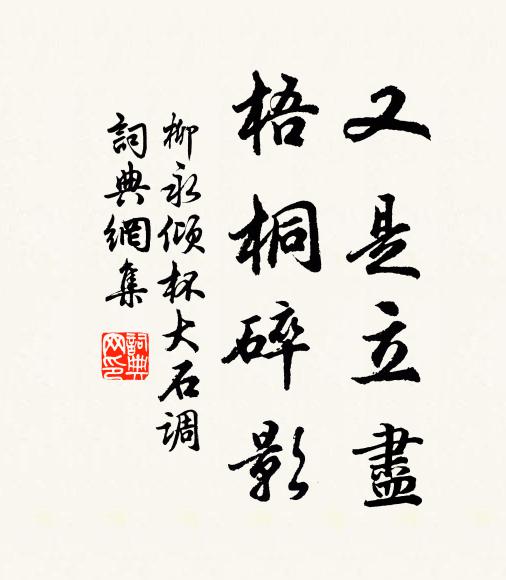 又是立盡
梧桐碎影
柳永傾杯大石調
詞典網集
詞典網印